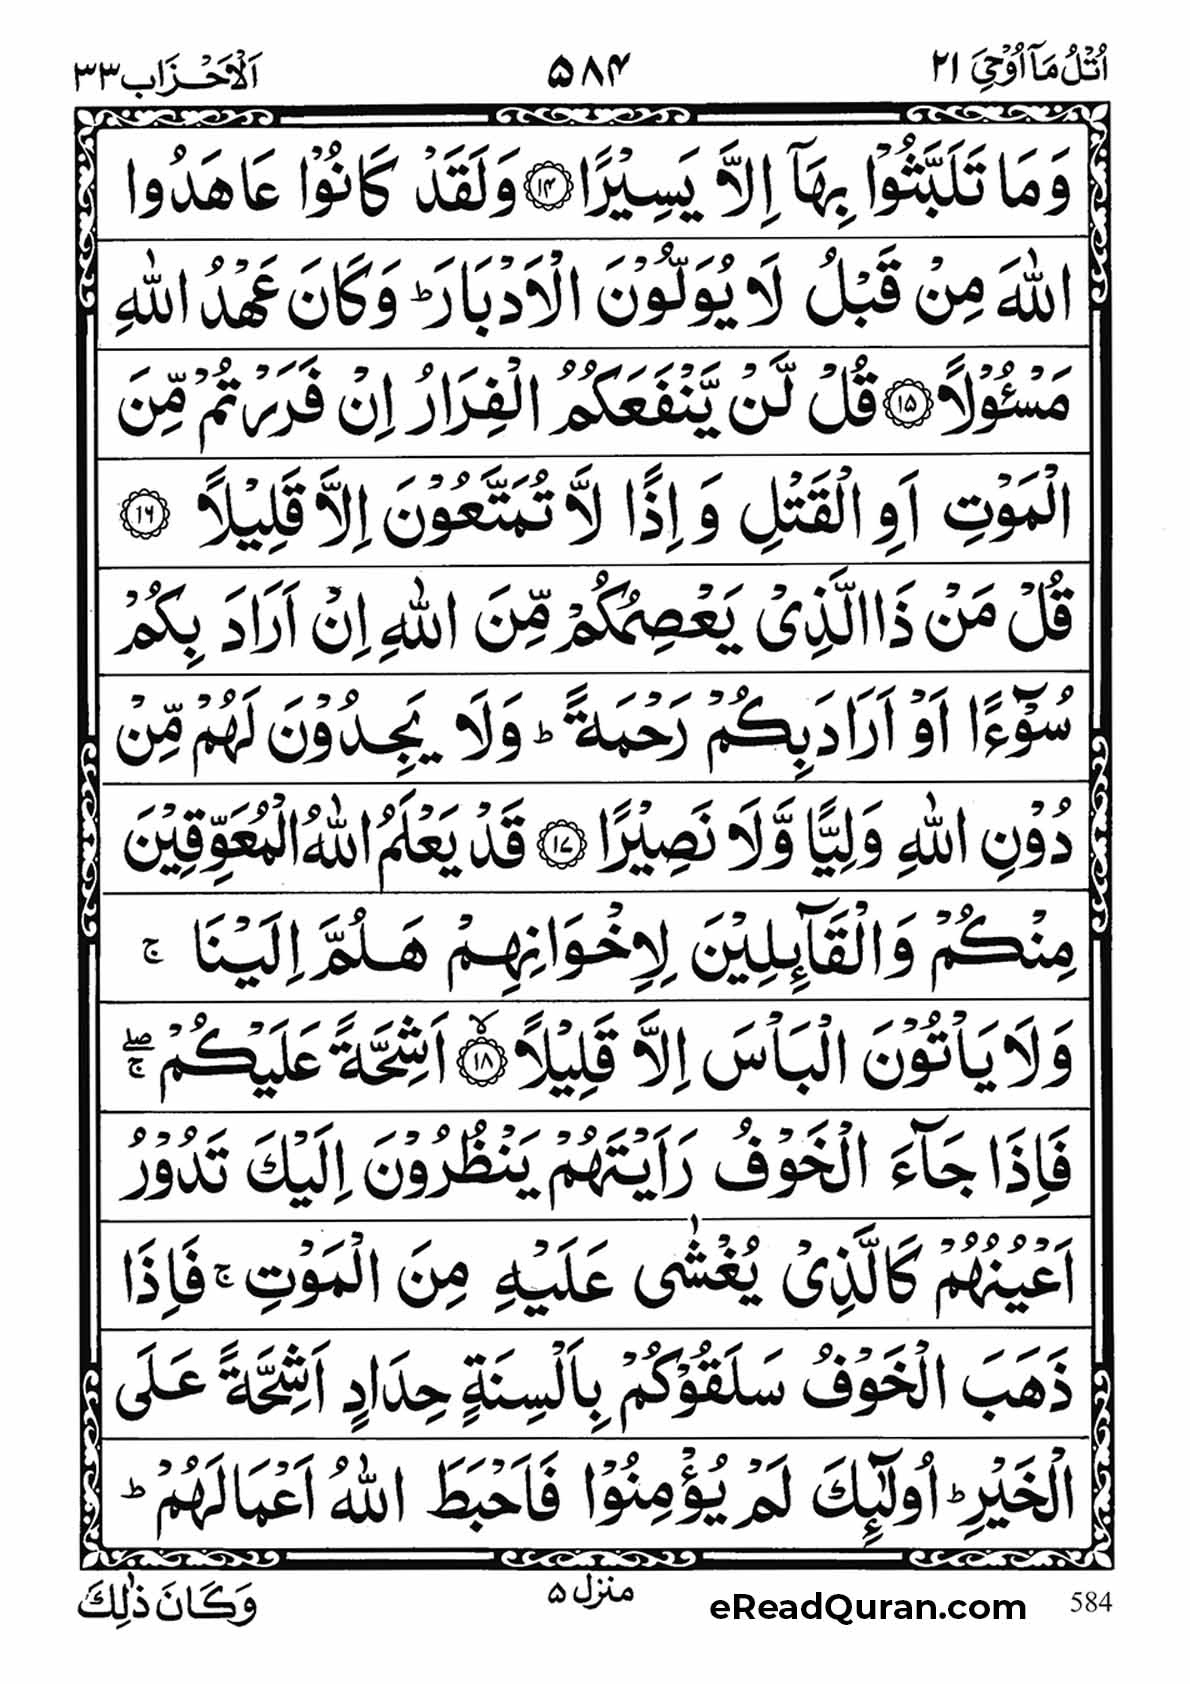 اُتْلُ مَاۤ اُوْحِیَ ۲۱
۵۸۴
اَلْاَحْزَاب ۳۳
وَمَا تَلَبَّثُوْا بِهَاۤ اِلَّا یَسِیْرًا ۝۱۴ وَلَقَدْ كَانُوْا عَاهَدُوا
اللّٰهَ مِنْ قَبْلُ لَا یُوَلُّوْنَ الْاَدْبَارَ ؕ وَكَانَ عَهْدُ اللّٰهِ
مَسْـُٔوْلًا ۝۱۵ قُلْ لَّنْ یَّنْفَعَكُمُ الْفِرَارُ اِنْ فَرَرْتُمْ مِّنَ
الْمَوْتِ اَوِ الْقَتْلِ وَ اِذًا لَّا تُمَتَّعُوْنَ اِلَّا قَلِیْلًا ۝۱۶
قُلْ مَنْ ذَا الَّذِیْ یَعْصِمُكُمْ مِّنَ اللّٰهِ اِنْ اَرَادَ بِكُمْ
سُوْٓءًا اَوْ اَرَادَ بِكُمْ رَحْمَةً ؕ وَلَا یَجِدُوْنَ لَهُمْ مِّنْ
دُوْنِ اللّٰهِ وَلِیًّا وَّلَا نَصِیْرًا ۝۱۷ قَدْ یَعْلَمُ اللّٰهُ الْمُعَوِّقِیْنَ
مِنْكُمْ وَالْقَآىِٕلِیْنَ لِاِخْوَانِهِمْ هَلُمَّ اِلَیْنَا ۚ
وَلَا یَاْتُوْنَ الْبَاْسَ اِلَّا قَلِیْلًا ۝۱۸ۙ اَشِحَّةً عَلَیْكُمْ ۖۚ
فَاِذَا جَآءَ الْخَوْفُ رَاَیْتَهُمْ یَنْظُرُوْنَ اِلَیْكَ تَدُوْرُ
اَعْیُنُهُمْ كَالَّذِیْ یُغْشٰی عَلَیْهِ مِنَ الْمَوْتِ ۚ فَاِذَا
ذَهَبَ الْخَوْفُ سَلَقُوْكُمْ بِاَلْسِنَةٍ حِدَادٍ اَشِحَّةً عَلَی
الْخَیْرِ ؕ اُولٰٓىِٕكَ لَمْ یُؤْمِنُوْا فَاَحْبَطَ اللّٰهُ اَعْمَالَهُمْ ؕ
وَكَانَ ذٰلِكَ
منزل ۵
eReadQuran.com
584